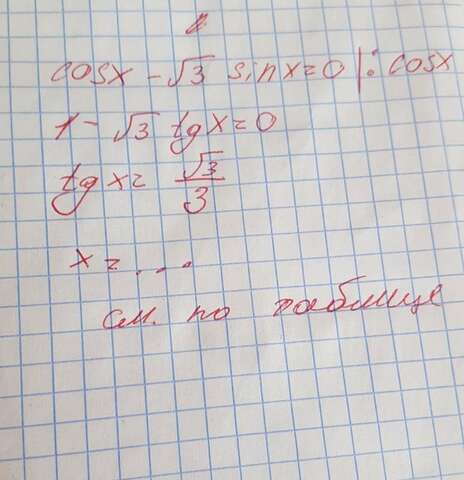 cosx - √3 sinx=0 |: cosx
1 - √3 tgx=0
tg x= √3/3
x = ...
см. по таблице